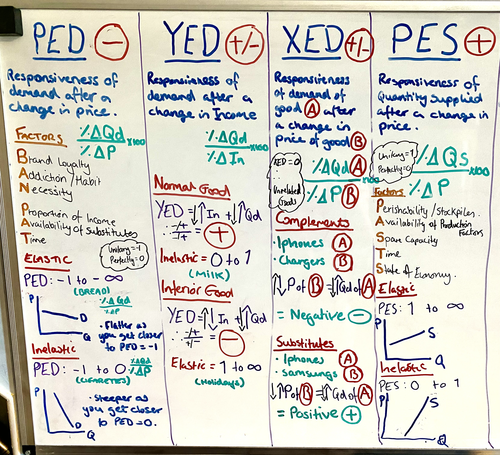 PED −
Responsiveness of
demand after a
change in price.
FACTORS %ΔQd x100
%ΔP
Brand Loyalty
Addiction / Habit
Necessity
Proportion of Income
Availability of Substitutes
Time
Unitary = -1
Perfectly = 0
ELASTIC
PED: -1 to -∞
(BREAD) %ΔQd
%ΔP
P
D
Q
• Flatter as
you get closer
to PED = -1
Inelastic
PED: -1 to 0 %ΔQd
%ΔP
(CIGARETTES)
P
D
Q
• Steeper as
you get closer
to PED=0.
YED +/-
Responsiveness of
demand after a
change in Income
%ΔQd x100
%ΔIn
Normal Good
YED = ↑↓In + ↑↓Qd
∴ -/+ = +
-/+
Inelastic = 0 to 1
(Milk)
Inferior Good
YED = ↑↓In ↑↓Qd
∴ = −
Elastic = 1 to ∞
(Holidays)
XED +/-
Responsiveness
of demand of
good A after
a change in
Price of good B
XED=0
∴
Unrelated
Goods
%ΔQd A x100
%ΔP B
Complements
• Iphones A
• Chargers B
↑↓P of B = ↑↓Qd of A
= Negative −
Substitutes
• Iphones A
• Samsungs B
↑↓P of B = ↑↓Qd of A
= Positive +
PES +
Responsiveness of
Quantity Supplied
after a change in
Price.
Unitary = 1
Perfectly = 0
%ΔQs x100
%ΔP
Factors
Perishability / Stockpiles.
Availability of Production
Factors
Spare Capacity
Time
State of Economy.
Elastic
PES: 1 to ∞
P
S
Q
Inelastic
PES: 0 to 1
P
S
Q